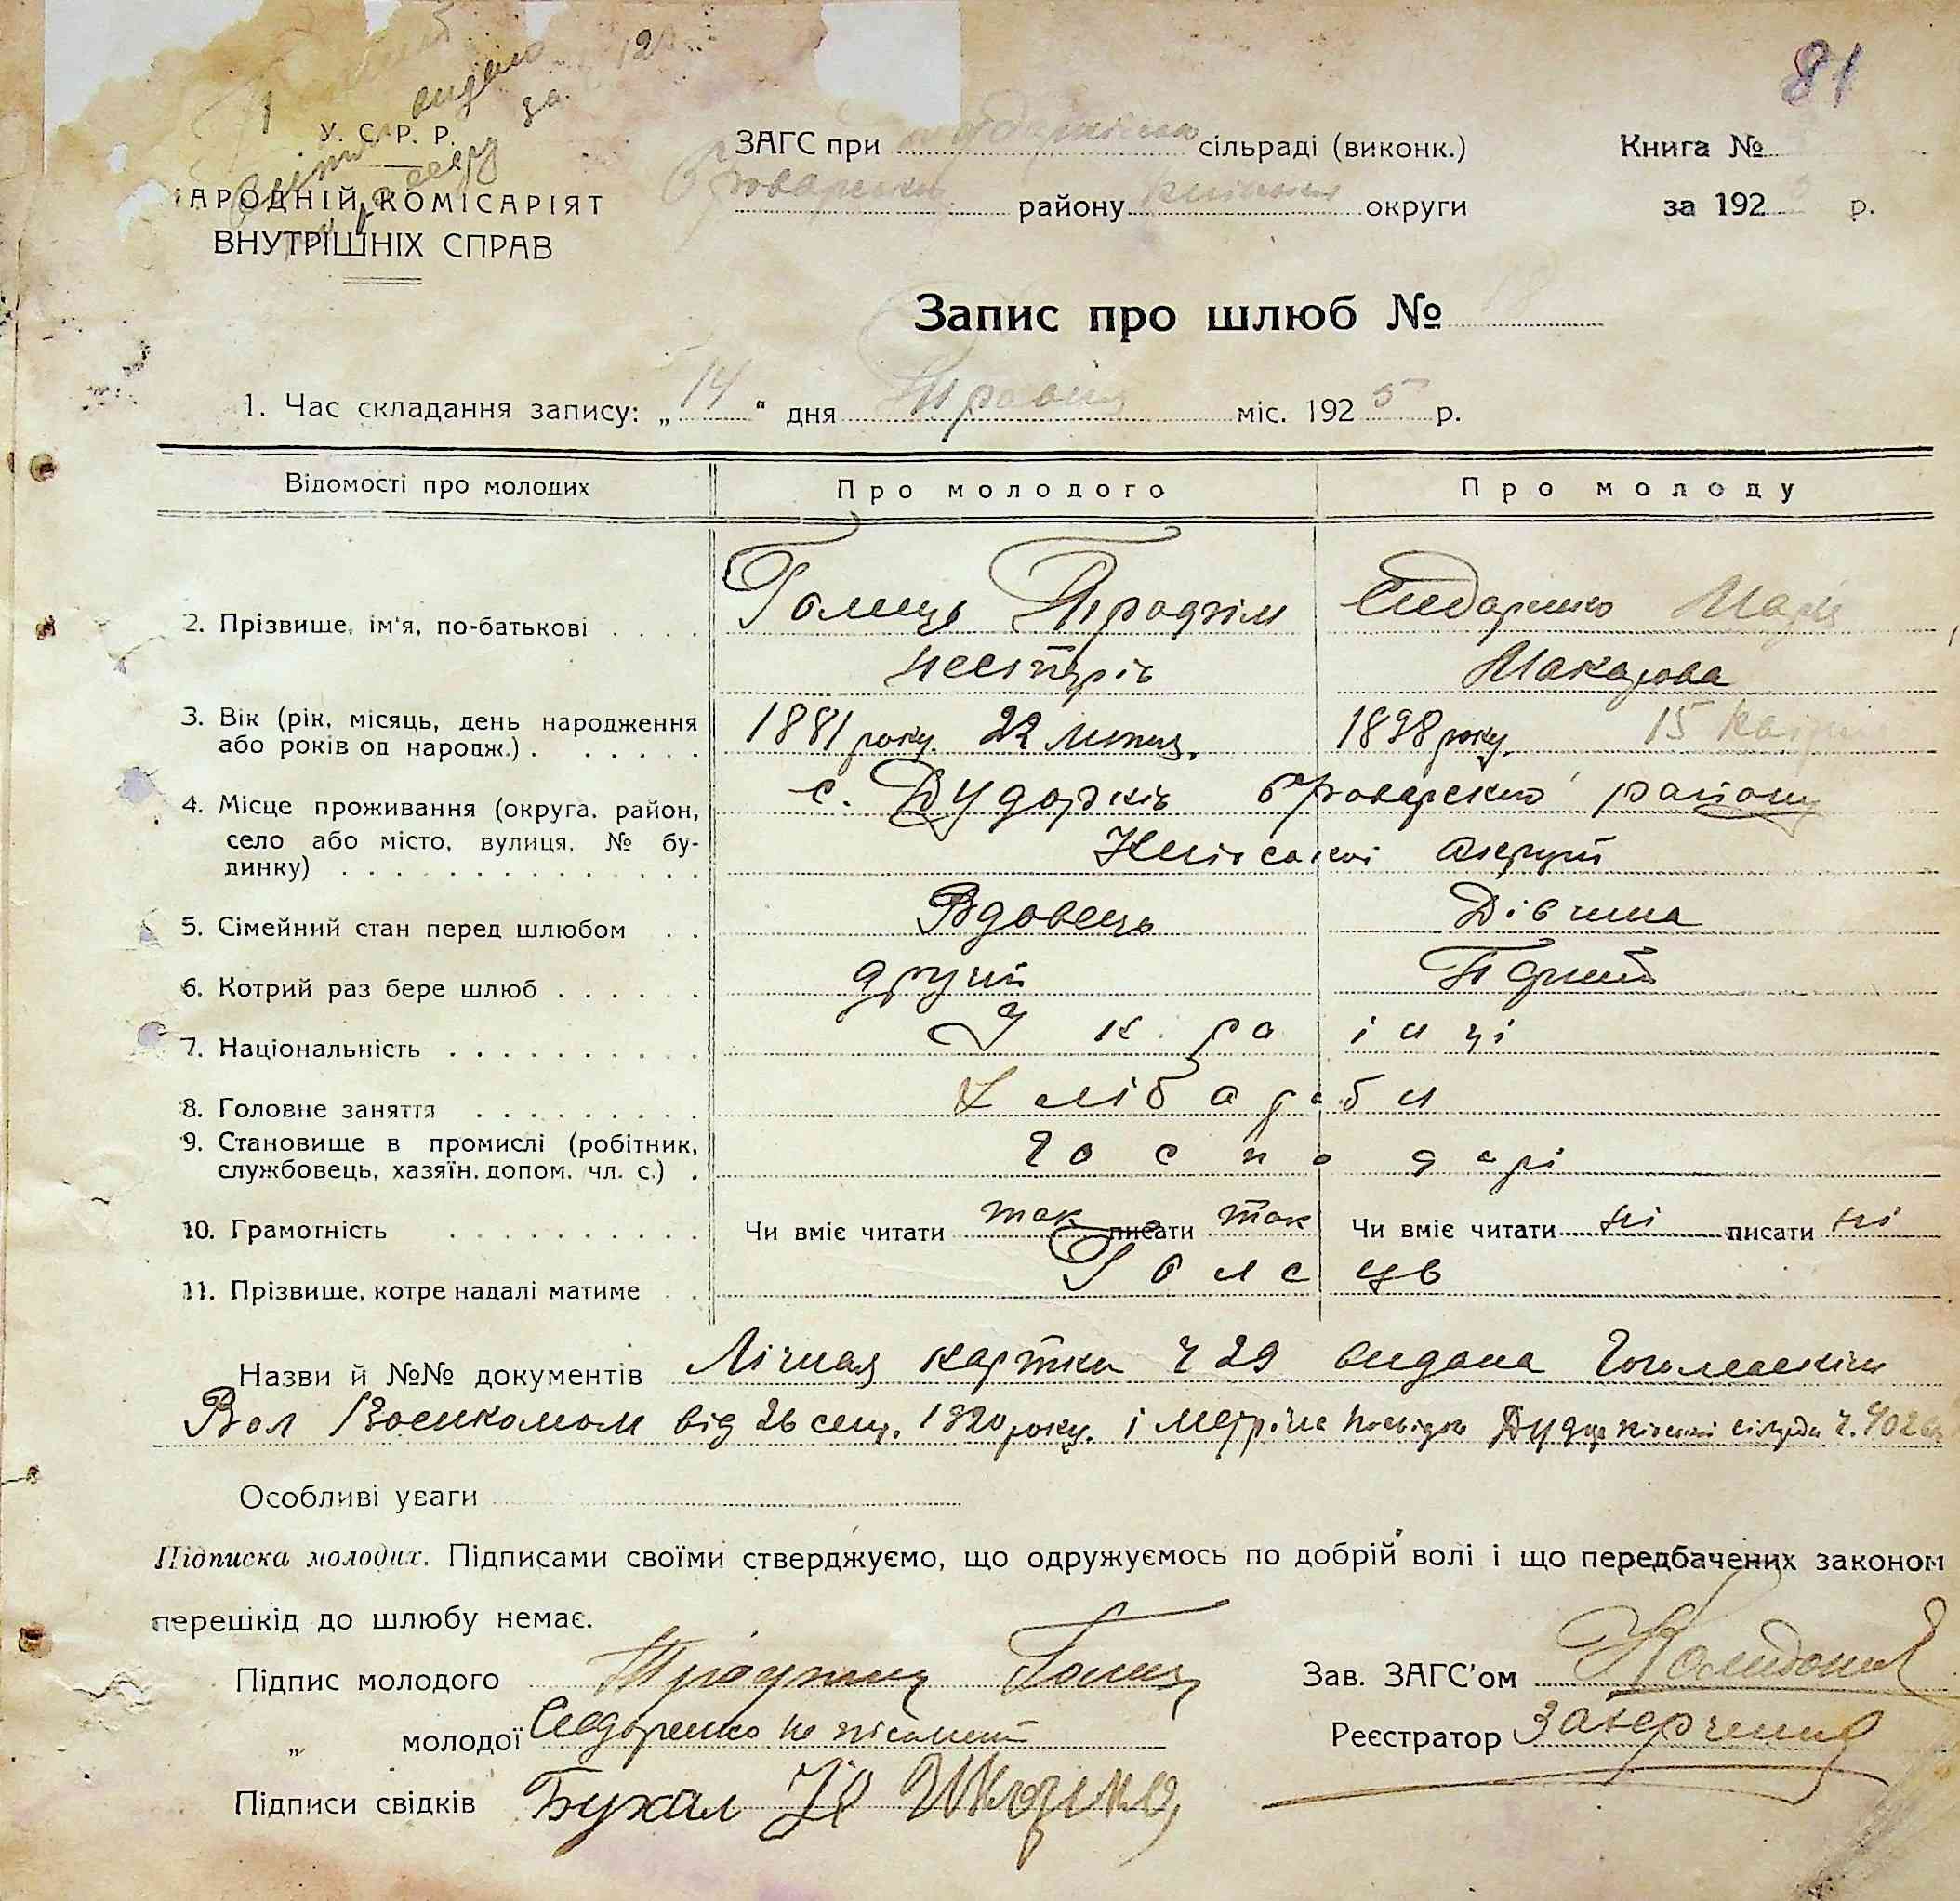 81
У. С. Р. Р.
НАРОДНІЙ КОМІСАРІЯТ
ВНУТРІШНІХ СПРАВ
ЗАГС при сільраді (виконк.)
району округи
Книга №
за 192 р.
Запис про шлюб №
1. Час складання запису: „14“ дня Травня міс. 1925 р.
Відомості про молодих Про молодого Про молоду
2. Прізвище, ім'я, по-батькові Голець Трохим Сидоренко Марія
Нестерів Макарова
3. Вік (рік, місяць, день народження або років од народж.) 1881 року 22 липця. 1898 року. 15 Квітня
4. Місце проживання (округа, район, село або місто, вулиця, № будинку) с. Дударків Броварського району
Київської округи
5. Сімейний стан перед шлюбом Вдовець Дівчина
6. Котрий раз бере шлюб другий Перший
7. Національність Українці
8. Головне заняття Хлібароби
9. Становище в промислі (робітник, службовець, хазяїн, допом. чл. с.) господарі
10. Грамотність Чи вміє читати так писати так Чи вміє читати ні писати ні
11. Прізвище, котре надалі матиме Голець
Назви й №№ документів Лічная картка ч 29 видана Гоголевскім
Вол Воєнкомом від 26 серп. 1920 року. і Метрічне посвідч Дударківської сільради ч. 402
Особливі уваги
Підписка молодих. Підписами своїми стверджуємо, що одружуємось по добрій волі і що передбачених законом
перешкід до шлюбу немає.
Підпис молодого Голец
„ молодої Сидоренко не пісьмені
Підписи свідків Бухал
Зав. ЗАГС'ом
Реєстратор